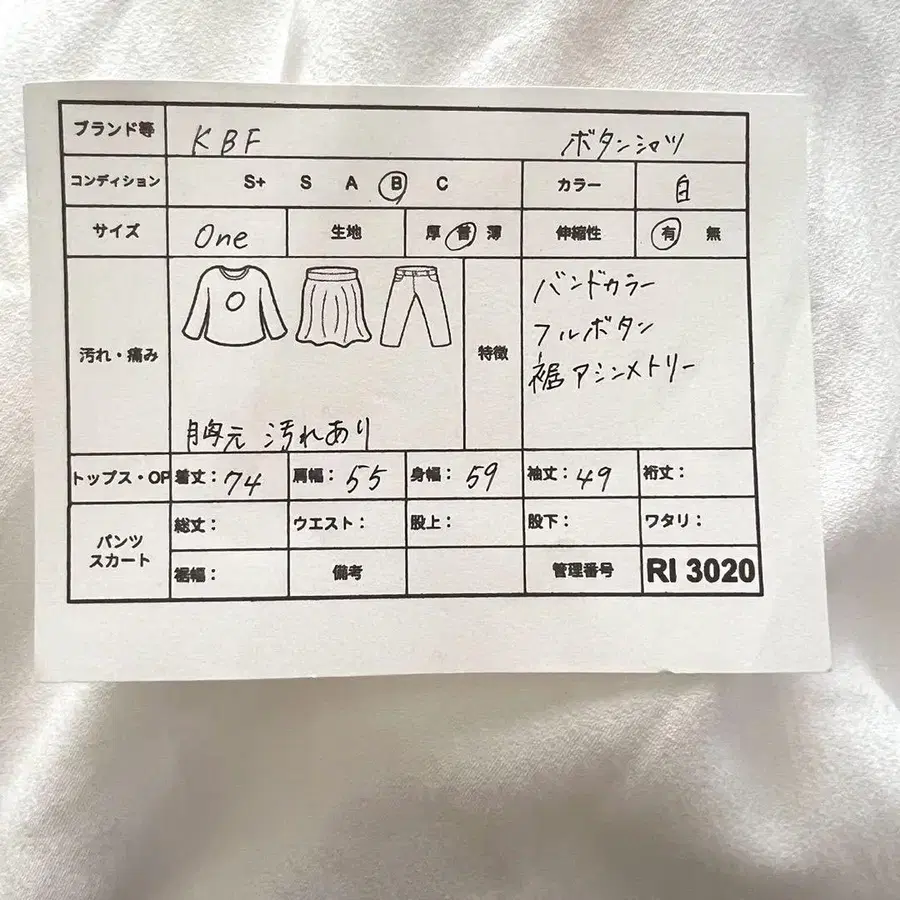 ブランド等 KBF ボタンシャツ
コンディション S+ S A B C カラー 白
サイズ One 生地 厚 普 薄 伸縮性 有 無
汚れ・痛み 胸元 汚れあり
特徴 バンドカラー
フルボタン
裾アシンメトリー
トップス・OP 着丈:74 肩幅:55 身幅:59 袖丈:49 裄丈:
パンツ
スカート
総丈: ウエスト: 股上: 股下: ワタリ:
裾幅: 備考 管理番号 RI 3020